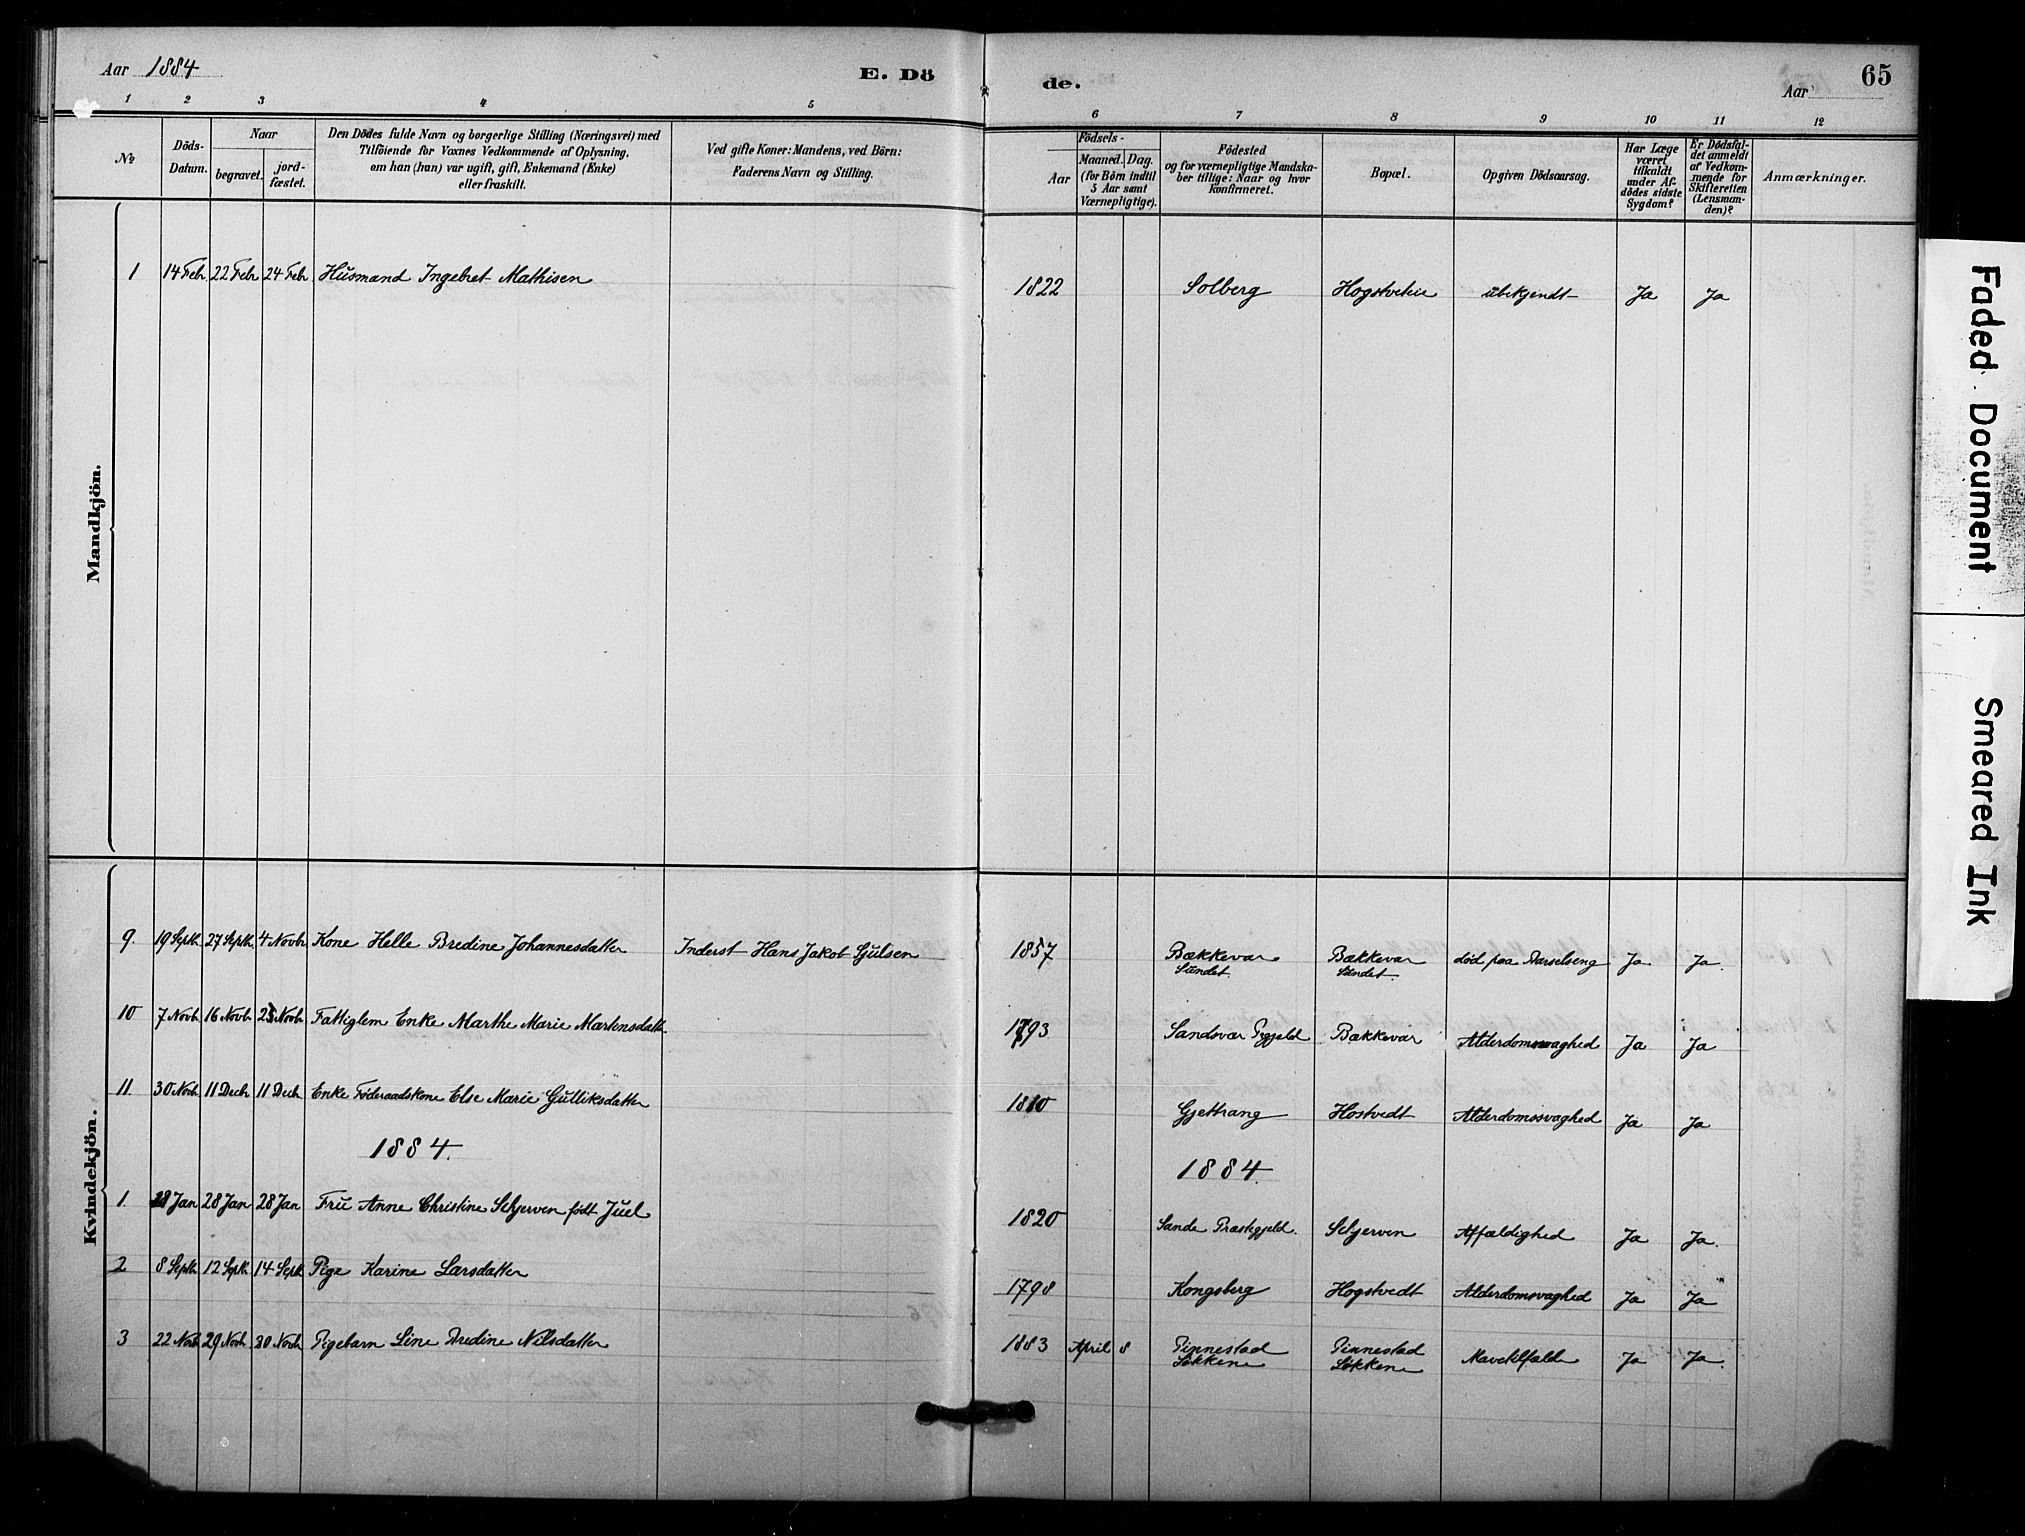 Aar 1884
E. Dö
de.
Aar
65
1 2 3 4 5
6 7 8 9 10 11 12
№
Döds-
Datum.
Naar
begravet.
jord-
fæstet.
Den Dödes fulde Navn og borgerlige Stilling (Næringsvei) med
Tilföiende for Voxnes Vedkommende af Oplysning,
om han (hun) var ugift, gift, Enkemand (Enke)
eller fraskilt.
Ved gifte Koner: Mandens, ved Börn:
Faderens Navn og Stilling.
Födsels-
Aar
Maaned. Dag.
(for Börn indtil
5 Aar samt
Værnepligtige).
Födested
og for værnepligtige Mandska-
ber tillige: Naar og hvor
konfirmeret.
Bopæl.
Opgiven Dödsaarsag.
Har Læge
været
tilkaldt
under Af-
dödes sidste
Sygdom?
Er Dödsfal-
det anmeldt
af Vedkom-
mende for
Skifteretten
(Lensman-
den)?
Anmærkninger.
Mandkjön.
1 14 Febr 22 Febr 24 Febr Husmand Ingebret Mathisen 1822 Solberg Hogstveteie ubekjendt Ja Ja
Kvindekjön.
9. 19 Septb. 27 Septb. 4 Novbr Kone Helle Bredine Johannesdatter Inderst Hans Jakob Gulsen 1857 Bækkevar Bækkevar død paa Barselseng Ja Ja.
Sundet. Sundet.
10 7 Novb. 16 Novb. 23 Novb. Fattiglem Enke Marthe Marie Martensdatter 1793 Sandsvær Prgjeld Bækkevar Alderdomssvaghed Ja Ja
11. 30 Novb. 11 Decb. 11 Decb. Enke Föderaadskone Else Marie Gulliksdatter 1810 Gjettrang Hostvedt Alderdomssvaghed Ja Ja
1884. 1884.
1. 18 Jan 28 Jan 28 Jan Fru Anne Christine Schjerven født Juel 1820 Sande Præstegjeld. Schjerven Affældighed Ja Ja.
2 8 Septb. 12 Septb. 14 Septb. Pige Karine Larsdatter 1798 Kongsberg Hogstvedt Alderdomsvaghed Ja Ja
3 22 Novb. 29 Novb. 30 Novb. Pigebarn Line Andine Nilsdatter 1883 April 8 Pinnestad Pinnestad Mavetilfælde Ja Ja.
Løkkene Løkkene
Faded Document
Smeared Ink